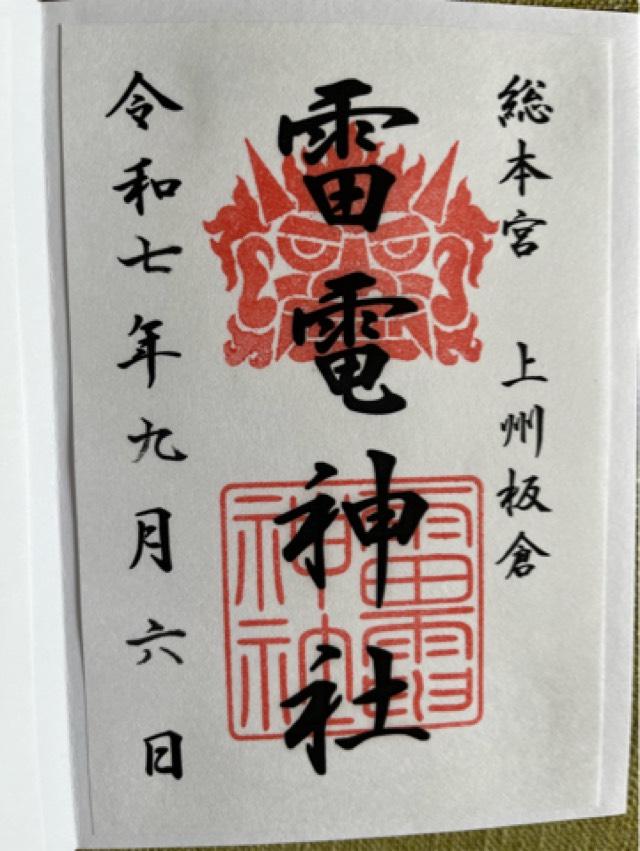 総本宮 上州板倉
雷電神社
令和七年九月六日
雷電
神社